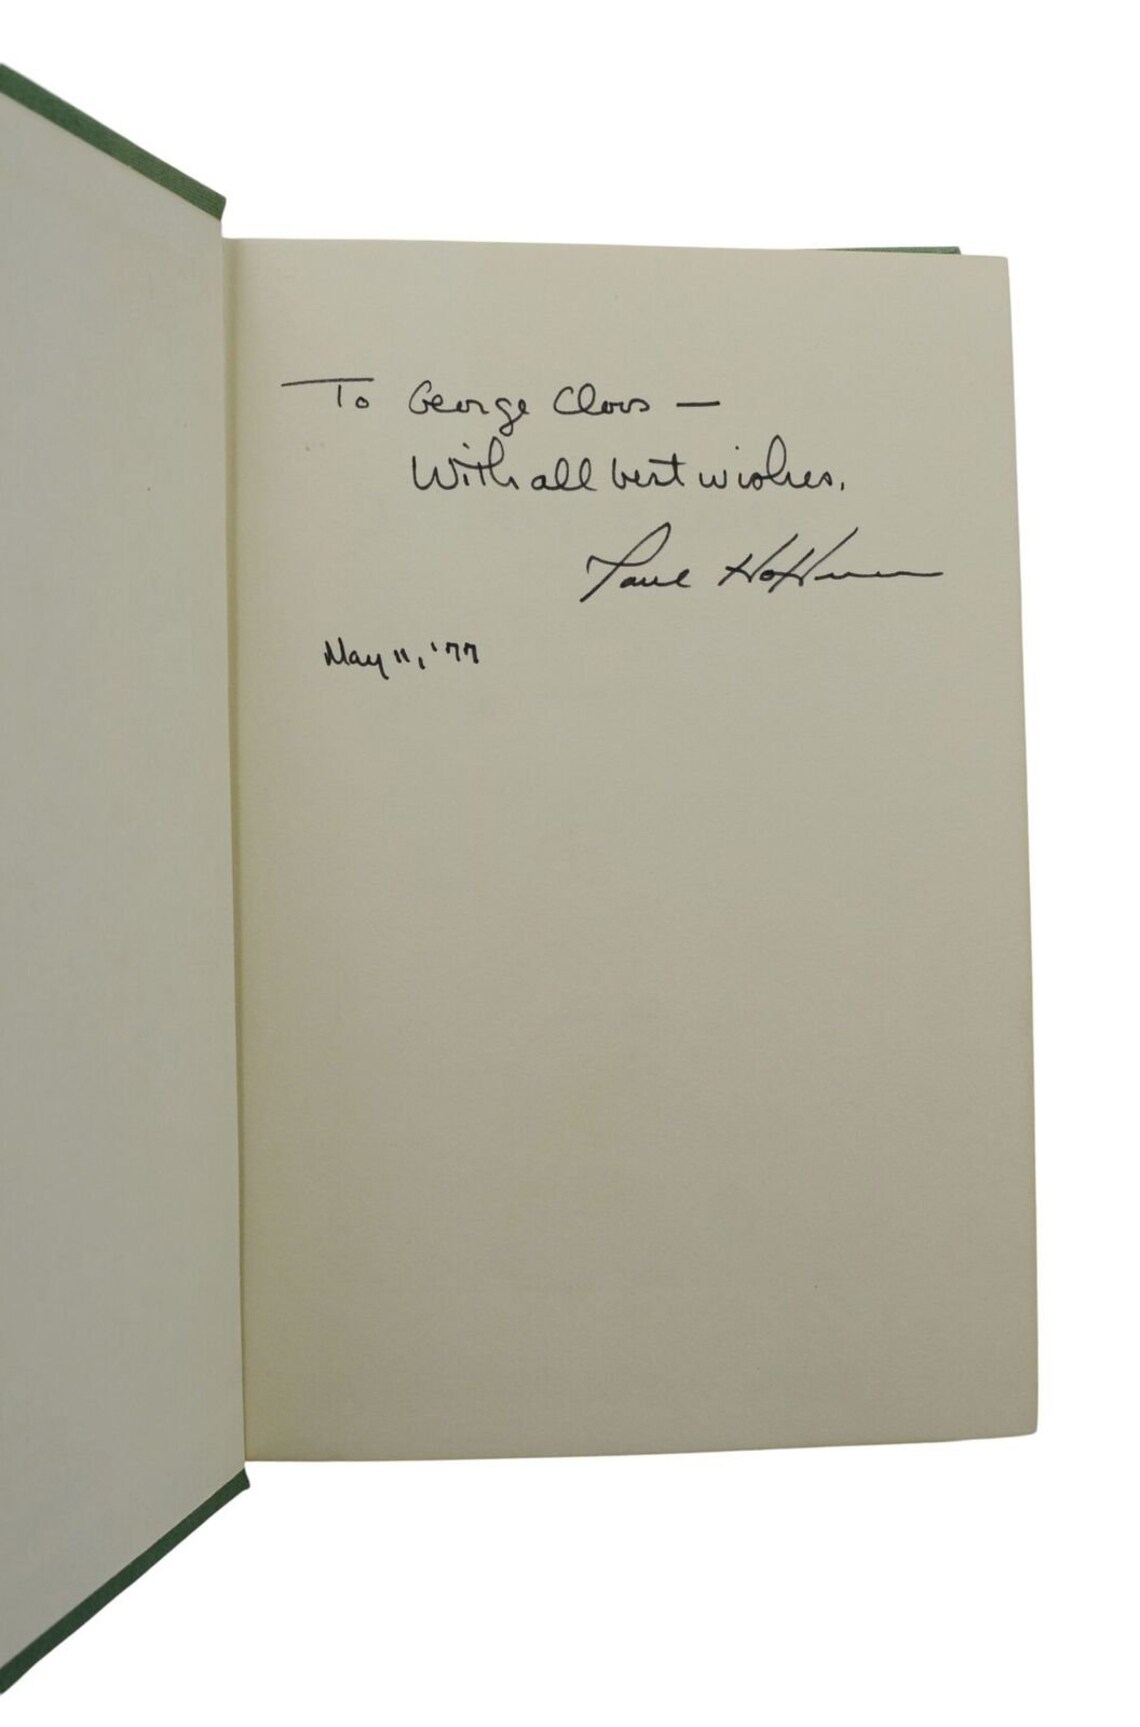 To George Cloos —
With all best wishes.
Paul Hoffman
May 11, '77